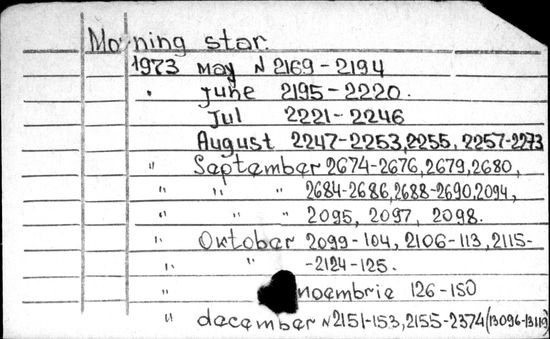 Morning star.
1973 May N 2169-2194
" June 2195-2220.
Jul 2221-2246
August 2247-2253,2255, 2257-2273
" September 2674-2676,2679,2680,
" " " 2684-2686,2688-2690,2094,
" " " 2095, 2097, 2098.
" Oktobar 2099-104, 2106-113,2115-
" " -2124-125.
" noembrie 126-150
" december N2151-153,2155-2374(13096-13119)